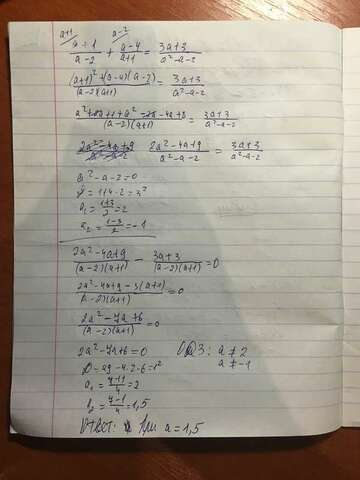 a+1 a-2
a+1/a-2 + a-4/a+1 = 3a+3/a²-a-2
(a+1)²+(a-4)(a-2)/(a-2)(a+1) = 3a+3/a²-a-2
/(a-2)(a+1) = 3a+3/a²-a-2
2a²-4a+9/a²-a-2 = 3a+3/a²-a-2
a²-a-2=0
=1+4·2=3²
a₁=1+3/2=2
a₂=1-3/2=-1
2a²-4a+9/(a-2)(a+1) - 3a+3/(a-2)(a+1) =0
2a²-4a+9-3(a+1)/(a-2)(a+1) =0
2a²-7a+6/(a-2)(a+1) =0
2a²-7a+6=0 ОДЗ: a≠2
a≠-1
D=49-4·2·6=1²
a₁=7+1/4=2
a₂=7-1/4=1,5
Ответ: при a=1,5